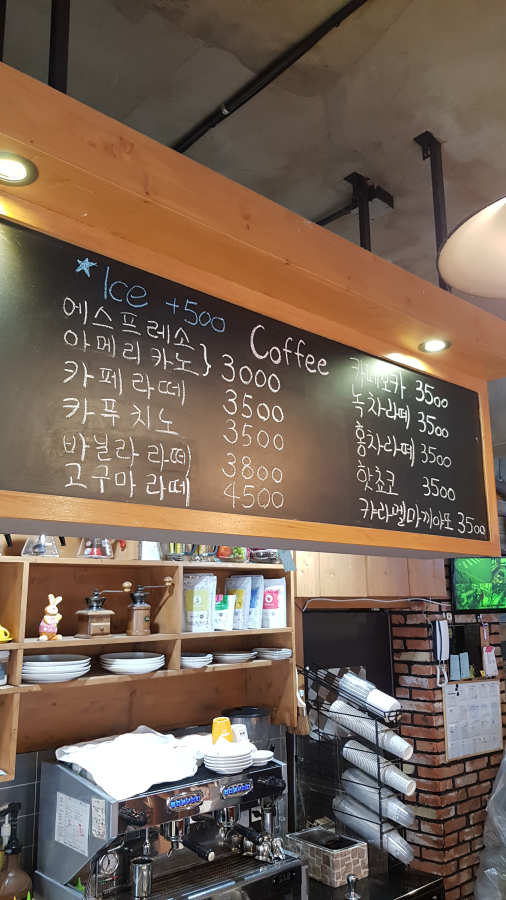 Ice +500
Coffee
에스프레소
아메리카노 } 3000
카페라떼 3500
카푸치노 3500
바닐라 라떼 3800
고구마 라떼 4500
카페모카 3500
녹차라떼 3500
홍차라떼 3500
핫쵸코 3500
캬라멜마끼아또 3500